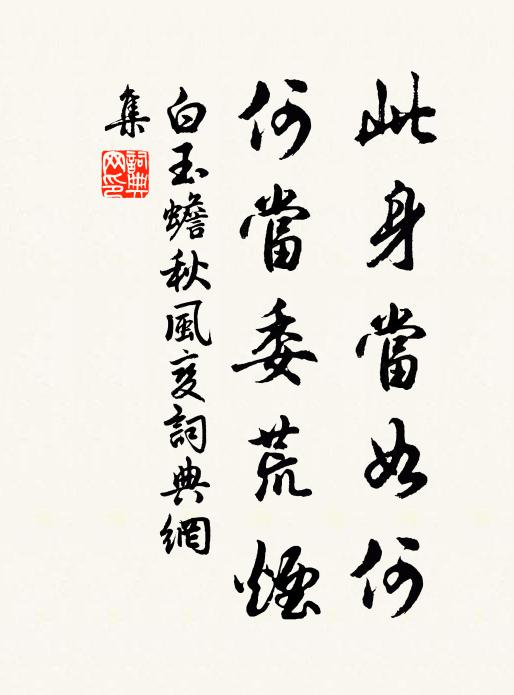 此身當如何
何當委荒煙
白玉蟾秋風變詞典網
集
詞典網印